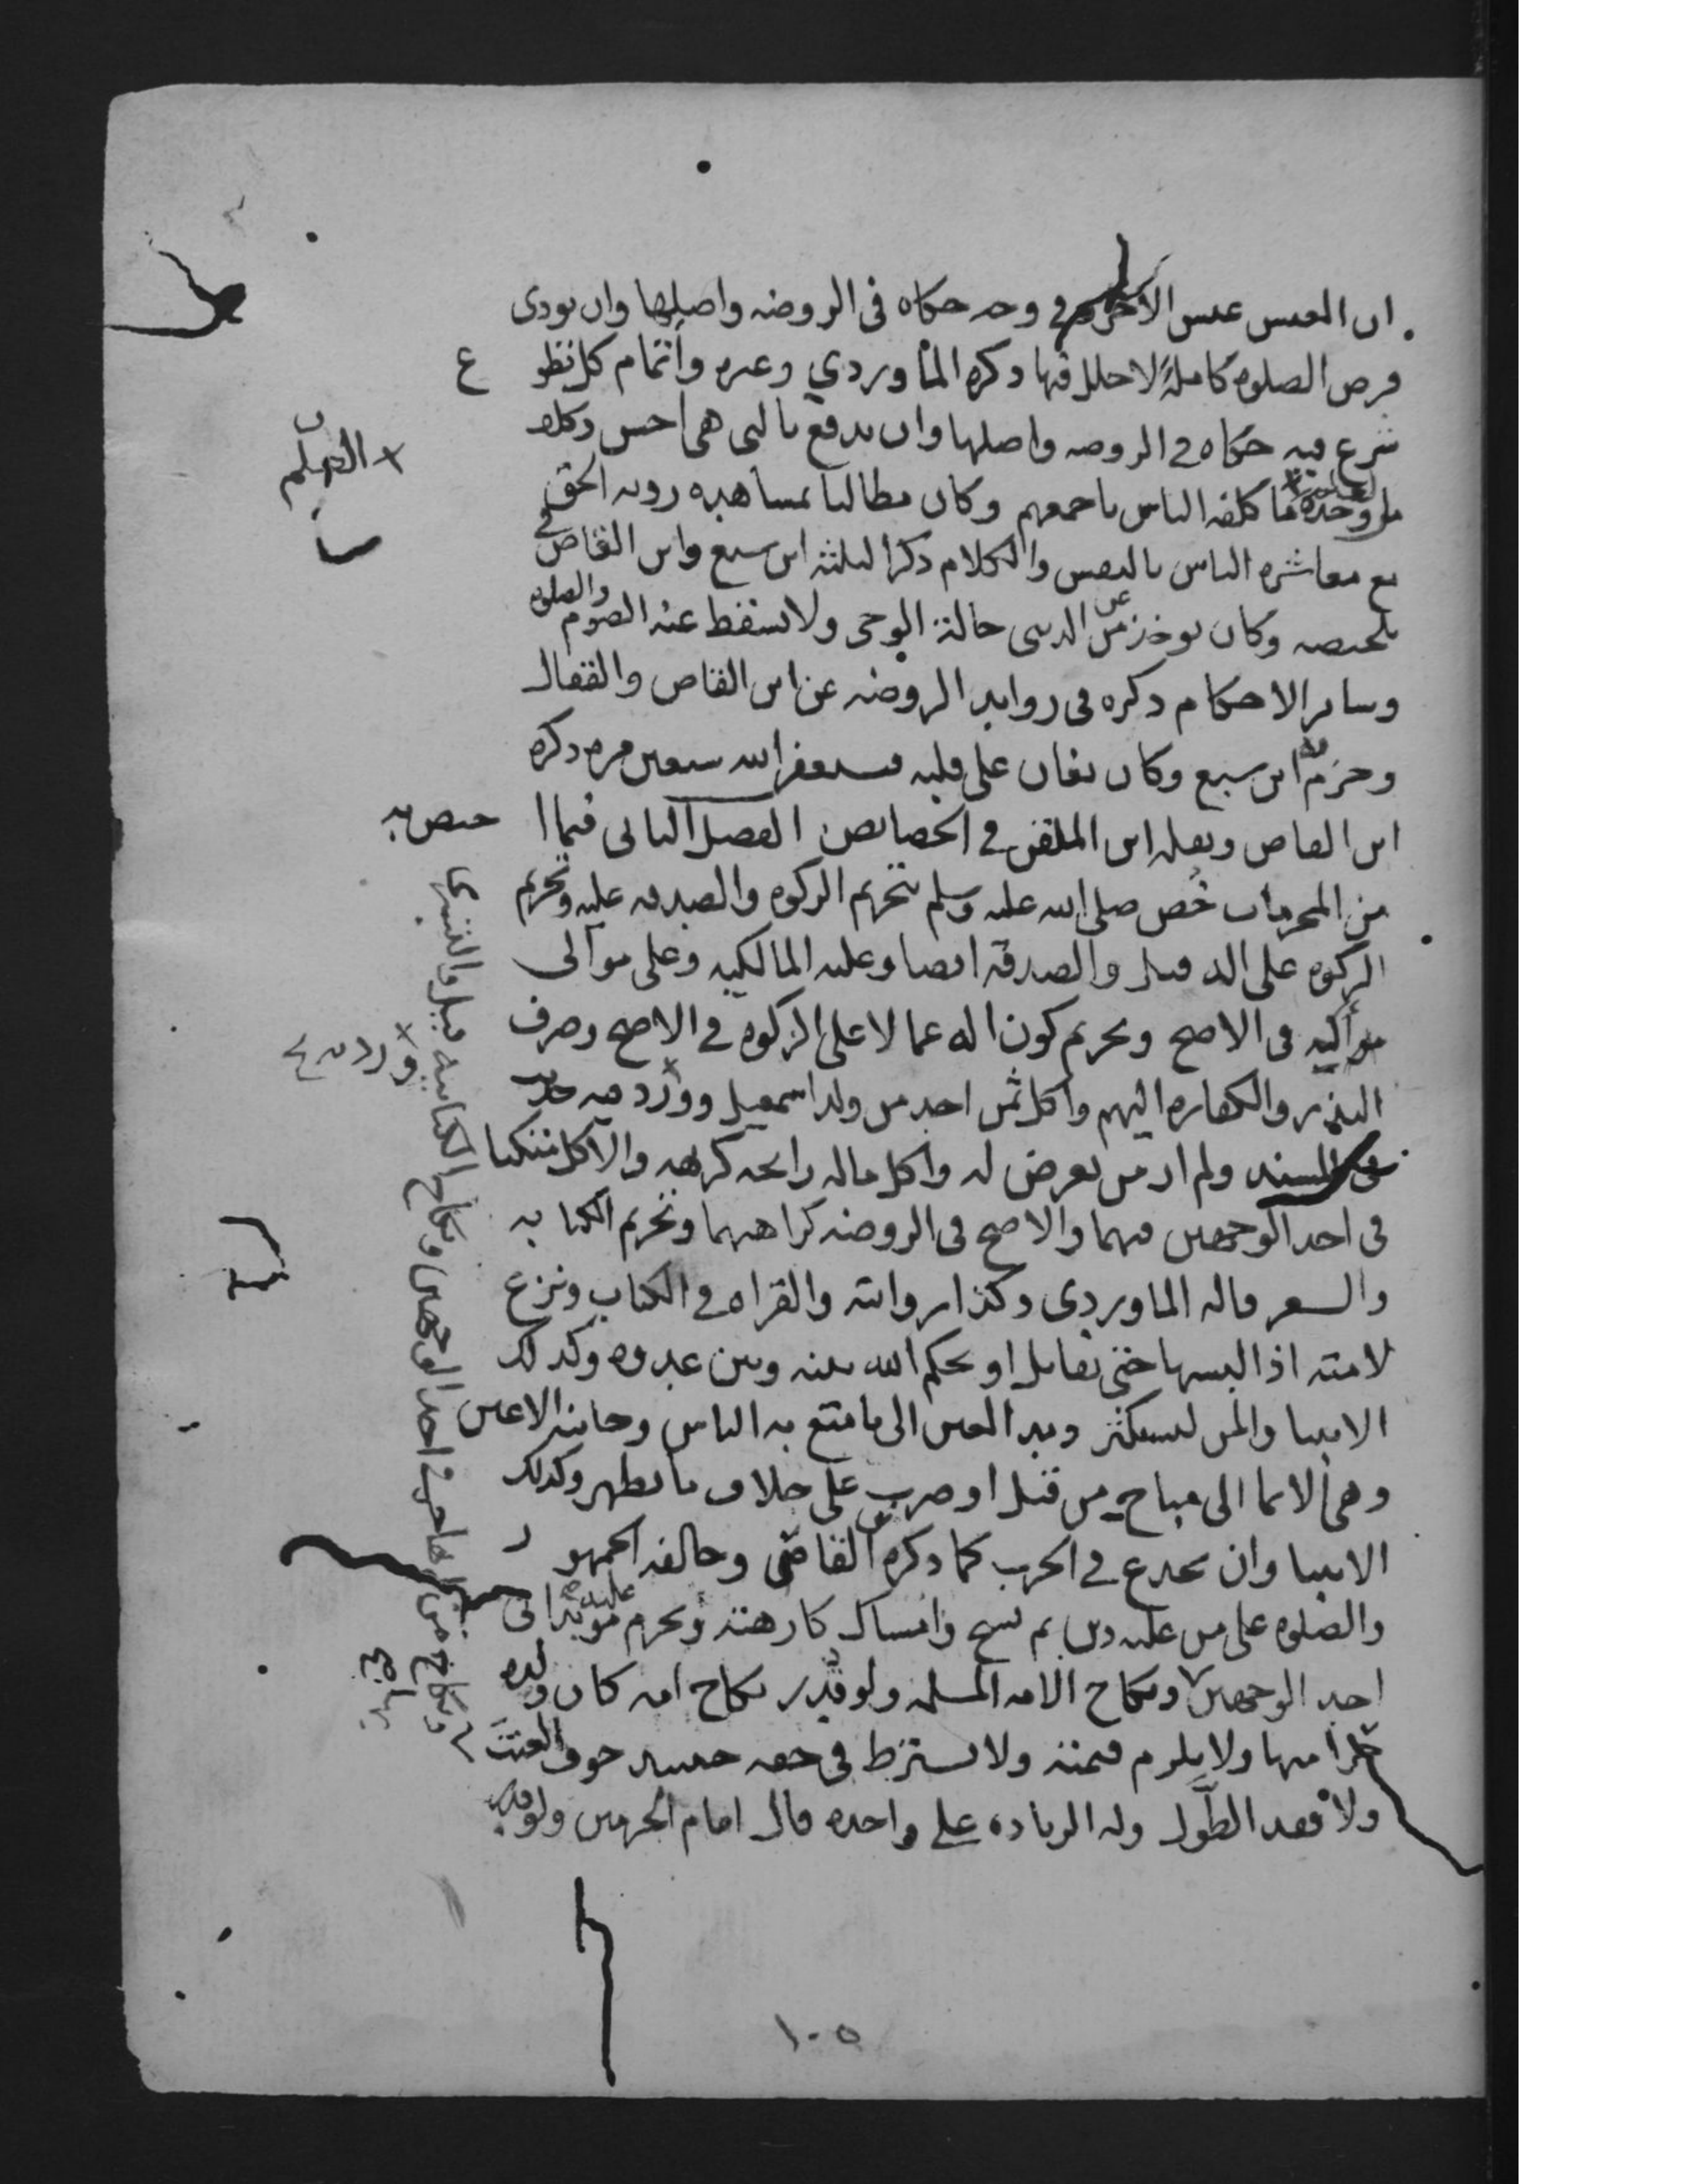 ان العيش عيش الآخرة في وجه حكاه في الروضه واصلها وان يودى
فرض الصلوه كاملة لا خلل فيها ذكره الماوردي وغيره واتمام كل تطوع
شرع فيه حكاه في الروضه واصلها وان يدفع بالتي هي احسن وكلف
من العلم وحده ما كلفه الناس باجمعهم وكان مطالبا بمشاهده رويه الحق
مع معاشره الناس بالنفس والكلام ذكر الثلثه ابن سبع وابن القاص في
تلخيصه وكان يوخذ عن الدنيى حالة الوحى ولا يسقط عنه الصوم والصلوه
وساير الاحكام ذكره في زوايد الروضه عن ابن القاص والقفال
وجزم به ابن سبع وكان يغان على قلبه فيستغفر الله سبعين مره ذكره
ابن القاص ونقله ابن الملقن في الخصايص الفصل الثاني فيما اختص به
من المحرمات خُص صلى الله عليه وسلم بتحريم الزكوه والصدقه عليه وتحريم
الزكوه على اله قيل والصدقة ايضا وعليه المالكيه وعلى موالى
مواليه في الاصح وتحريم كون اله عمالا على الزكوه في الاصح وصرف
النذر والكفاره اليهم واكل ثمن احد من ولد اسمعيل وورد فيه حديث
في المسند ولم ار من تعرض له واكل ماله رائحه كريهه والاكل متكيا
في احد الوجهين فيهما والاصح في الروضه كراهتهما وتحريم الكتابه
والشعر قاله الماوردى وكذا روايته والقراه في الكتاب ونزع
لامته اذا لبسها حتى يقاتل او يحكم الله بينه وبين عدوه وكذلك
الانبيا والمن ليستكثر ومد العين الى ما متع به الناس وخاينة الاعين
وهي الايما الى مباح من قتل او ضرب على خلاف ما يظهر وكذلك
الانبيا وان يخدع في الحرب كما ذكره ابن القاص وخالفه الجمهور
والصلوه على من عليه دين ثم نسخ وامساك كارهته وتحرم عليه موبدا في
احد الوجهين ونكاح الامه المسلمه ولو قُدّر نكاح امه كان ولده
حرا منها ولا يلزم قيمته ولا يشترط في حقه حينئذ خوف العنت
ولا فقد الطَّول وله الزياده على واحده قال امام الحرمين ولو قدر
العلم
وورد فيه
ونكاح من لم تهاجر في احد الوجهين ونكاح الكتابيه قيل والتسرى بها
١٠٥